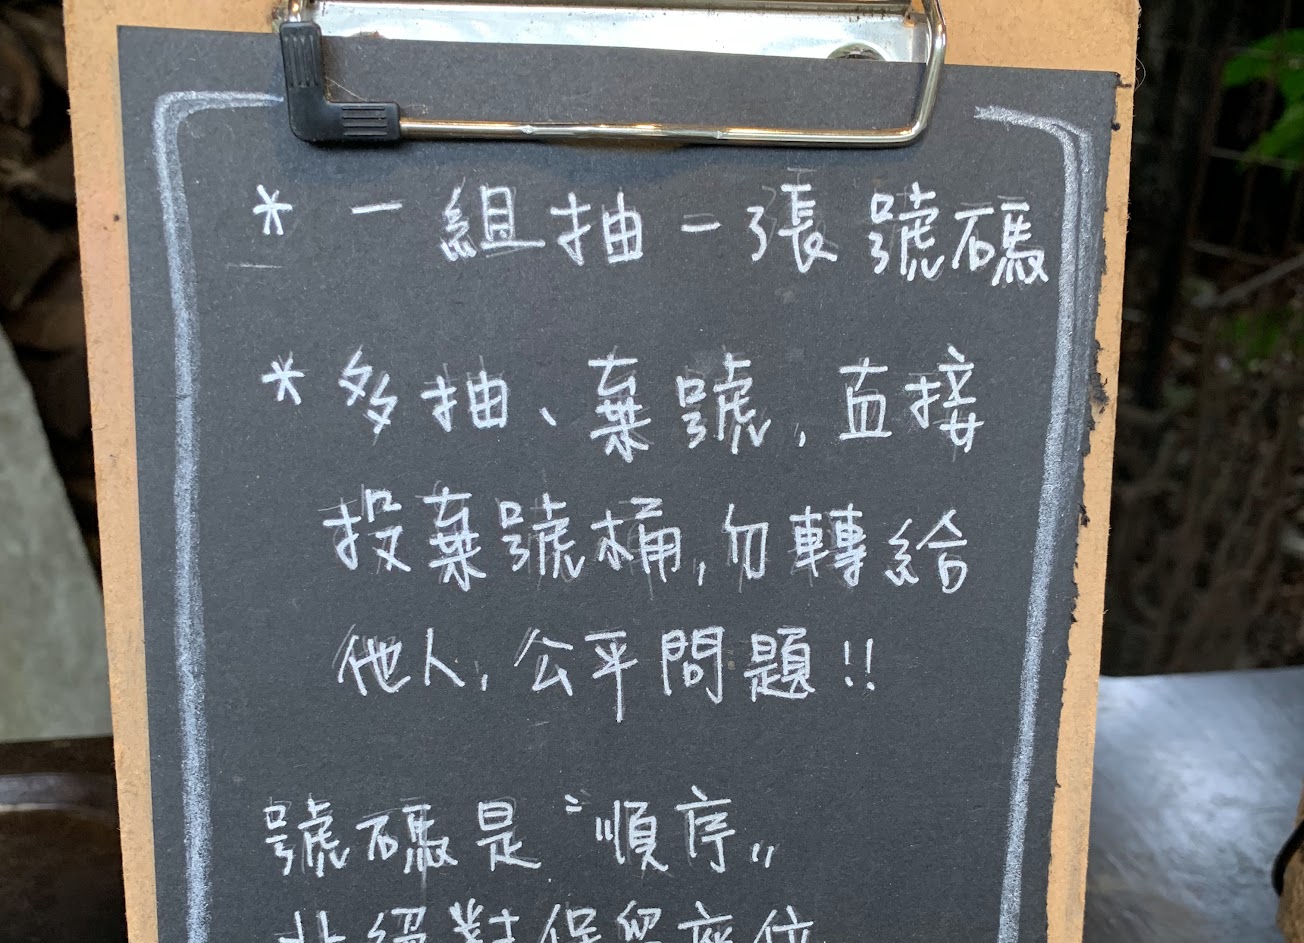 * 一組抽一張號碼
* 多抽、棄號，直接
投棄號桶，勿轉給
他人，公平問題!!
號碼是“順序”
非絕對保留座位